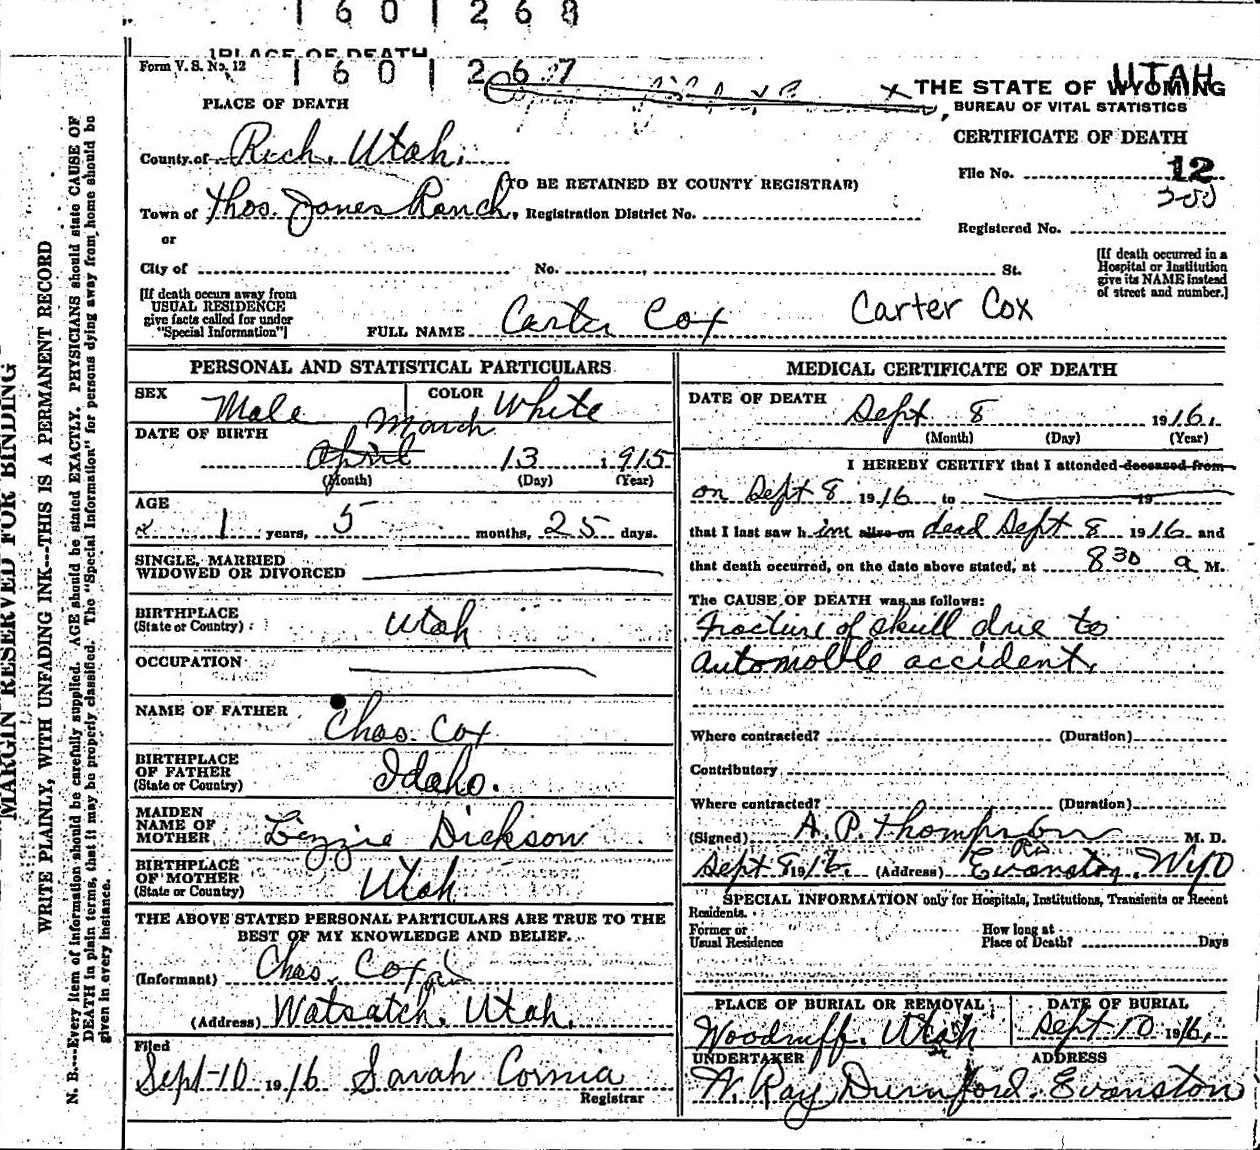 1601268
PLACE OF DEATH
Form V. S. No. 12
1601267
UTAH
THE STATE OF WYOMING
BUREAU OF VITAL STATISTICS
CERTIFICATE OF DEATH
PLACE OF DEATH
County of Rich, Utah.
(TO BE RETAINED BY COUNTY REGISTRAR)
File No. 12
Town of Thos. Jones Ranch, Registration District No.
Registered No.
or
City of No. , St.
[If death occurred in a
Hospital or Institution
give its NAME instead
of street and number.]
[If death occurs away from
USUAL RESIDENCE
give facts called for under
"Special Information"]
FULL NAME Carter Cox Carter Cox
PERSONAL AND STATISTICAL PARTICULARS
SEX Male
COLOR White
DATE OF BIRTH March
April 13 1915
(Month) (Day) (Year)
AGE
1 years, 5 months, 25 days.
SINGLE, MARRIED
WIDOWED OR DIVORCED
BIRTHPLACE
(State or Country) Utah
OCCUPATION
NAME OF FATHER Chas. Cox
BIRTHPLACE
OF FATHER
(State or Country) Idaho.
MAIDEN
NAME OF
MOTHER Lizzie Dickson
BIRTHPLACE
OF MOTHER
(State or Country) Utah
THE ABOVE STATED PERSONAL PARTICULARS ARE TRUE TO THE
BEST OF MY KNOWLEDGE AND BELIEF.
(Informant) Chas. Cox
(Address) Watsatch, Utah.
Filed
Sept-10 1916 Sarah Cornia
Registrar
MEDICAL CERTIFICATE OF DEATH
DATE OF DEATH Sept 8 1916.
(Month) (Day) (Year)
I HEREBY CERTIFY that I attended deceased from
on Sept 8 1916 to 19
that I last saw him alive on dead Sept 8 1916 and
that death occurred, on the date above stated, at 8 30 a M.
The CAUSE OF DEATH was as follows:
Fracture of skull due to
automobile accident.
Where contracted? (Duration)
Contributory
Where contracted? (Duration)
(Signed) A. P. Thompson M. D.
Sept 8 1916. (Address) Evanston, Wyo
SPECIAL INFORMATION only for Hospitals, Institutions, Transients or Recent
Residents.
Former or
Usual Residence
How long at
Place of Death? Days
PLACE OF BURIAL OR REMOVAL
Woodruff, Utah
DATE OF BURIAL
Sept 10 1916.
UNDERTAKER ADDRESS
W. Ray Durnford. Evanston
MARGIN RESERVED FOR BINDING
WRITE PLAINLY, WITH UNFADING INK---THIS IS A PERMANENT RECORD
N. B.---Every item of information should be carefully supplied. AGE should be stated EXACTLY. PHYSICIANS should state CAUSE OF
DEATH in plain terms, that it may be properly classified. The "Special Information" for persons dying away from home should be
given in every instance.